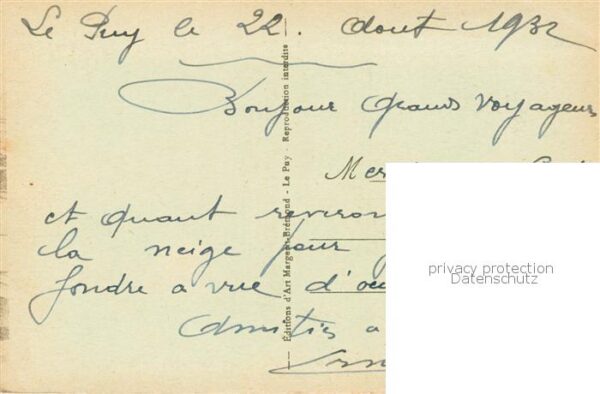 Le Puy le 22. Aout 1932
Bonjour Grands Voyageurs
et quant
la neige pour
fondre a vue d'oeu
Amitis a
Éditions d'Art Margerit-Brémond - Le Puy - Reproduction interdite
privacy protection
Datenschutz